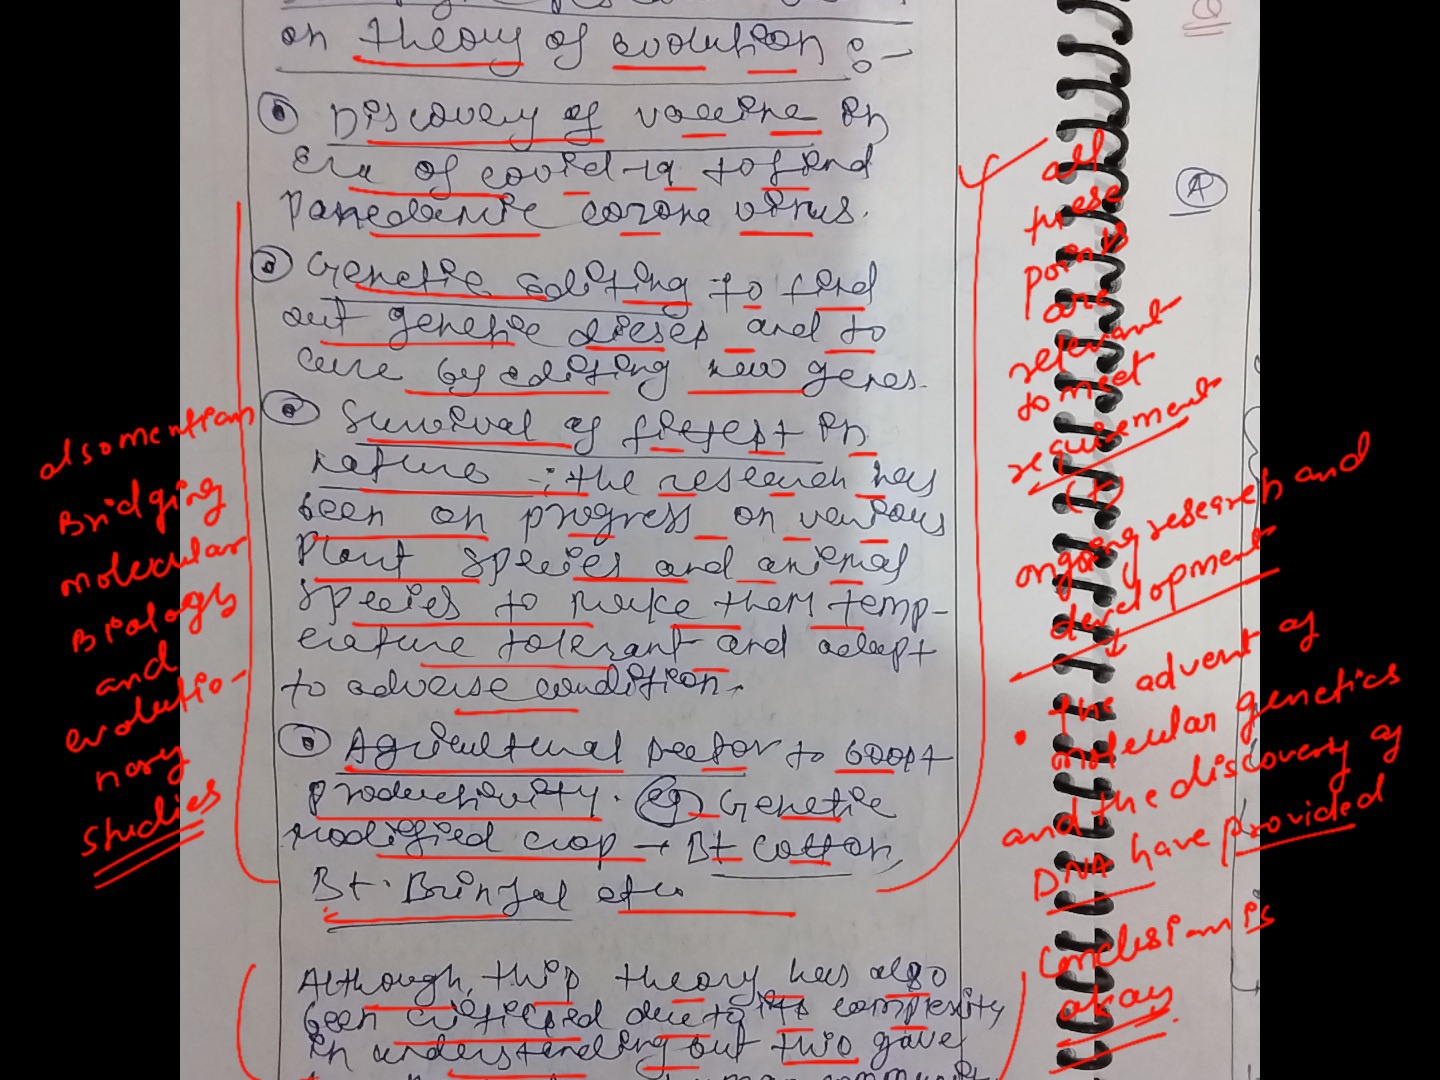 on theory of evolution :-
Discovery of vaccine in
Era of covid-19 to find
Panedamic corona virus.
Genetic Editing to find
out genetic dieses and to
cure by editing new genes.
Survival of fittest in
nature :- the research has
been on progress on various
Plant species and animal
species to make them temp-
erature tolerant and adapt
to adverse condition.
Agricultural sector to boost
productivity. eg Genetic
modified crop → Bt cotton,
Bt. Brinjal etc.
Although, this theory has also
been criticised due to its complexity
in understanding but this gave
also mention
Bridging
molecular
Biology
and
evolutio-
nary
studies
all
these
points
are
relevant
to meet
requirement
(+)
ongoing research and
development
↓
• The advent of
molecular genetics
and the discovery of
DNA have provided
conclusion is
okay
A